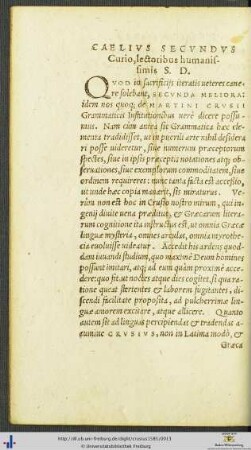 CAELIVS SECVNDVS
Curio, lectoribus humanis-
simis S. D.
QVOD in sacrificijs iteratis ueteres cane-
re solebant, SECVNDA MELIORA:
idem nos quoq; de MARTINI CRVSII
Grammaticis Institutionibus uerè dicere possu-
mus. Nam cùm antea sic Grammaticæ hæc ele-
menta tradidisset, ut in puerili arte nihil desidera-
ri posse uideretur, siue numerum præceptorum
spectes, siue in ipsis præceptis notationes atq; ob-
seruationes, siue exemplorum commoditatem, siue
ordinem requireret: nunc tanta facta est accessio,
ut unde hæc copia manarit, sis miraturus. Ve-
rùm non est hoc in Crusio nostro mirum, qui in-
genij diuite uena præditus, & Græcarum literar
rum cognitione ita instructus est, ut omnia Græcæ
linguæ mysteria, omnes arculas, omnia myrothe-
cia euoluisse uideatur. Accedit his ardens quod-
dam iuuandi studium, quo maximè Deum homines
possunt imitari, atq; ad eum quàm proximè acce-
dere: quo fit ut noctes atque dies cogitet, si qua ra-
tione queat stertentes & laborem fugitantes, di-
scendi facilitate proposita, ad pulcherrimæ lin-
guæ amorem excitare, atque allicere. Quanto
autem sit ad linguas percipiendas & tradendas a-
cumine CRVSIVS, non in Latina modò, &
Græca
http://dl.ub.uni-freiburg.de/diglit/crusius1585/0011
© Universitätsbibliothek Freiburg